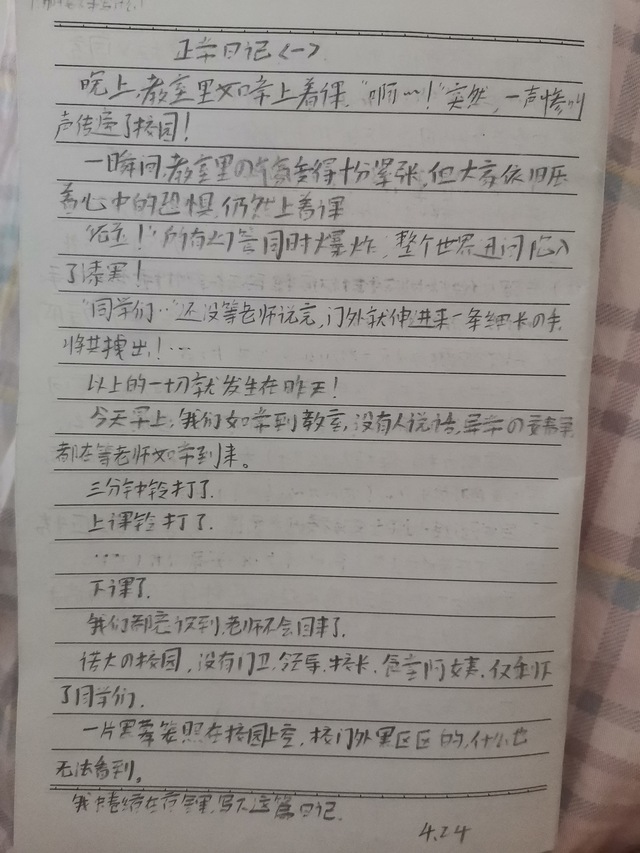 正常日记<一>
晚上,教室里如常上着课,"啊…!"突然,一声惨叫
声传遍了校园!
一瞬间,教室里の气氛变得十分紧张,但大家依旧压
着心中的恐惧,仍然上着课
!"所有灯管同时爆炸,整个世界且间陷入
了漆黑!
"同学们…"还没等老师说完,门外就伸进来一条细长の手
将其拽出!…
以上的一切就发生在昨天!
今天早上,我们如常到教室,没有人说话,异常の安静
都在等老师如常到来。
三分钟铃打了.
上课铃打了.
…
下课了.
我们都意识到,老师不会回来了.
诺大の校园,没有门卫.领导.校长.食堂阿姨.仅剩下
了同学们.
一片黑幕笼照在校园上空,校门外黑区区的,什么也
无法看到。
我写下这篇日记.
4.24